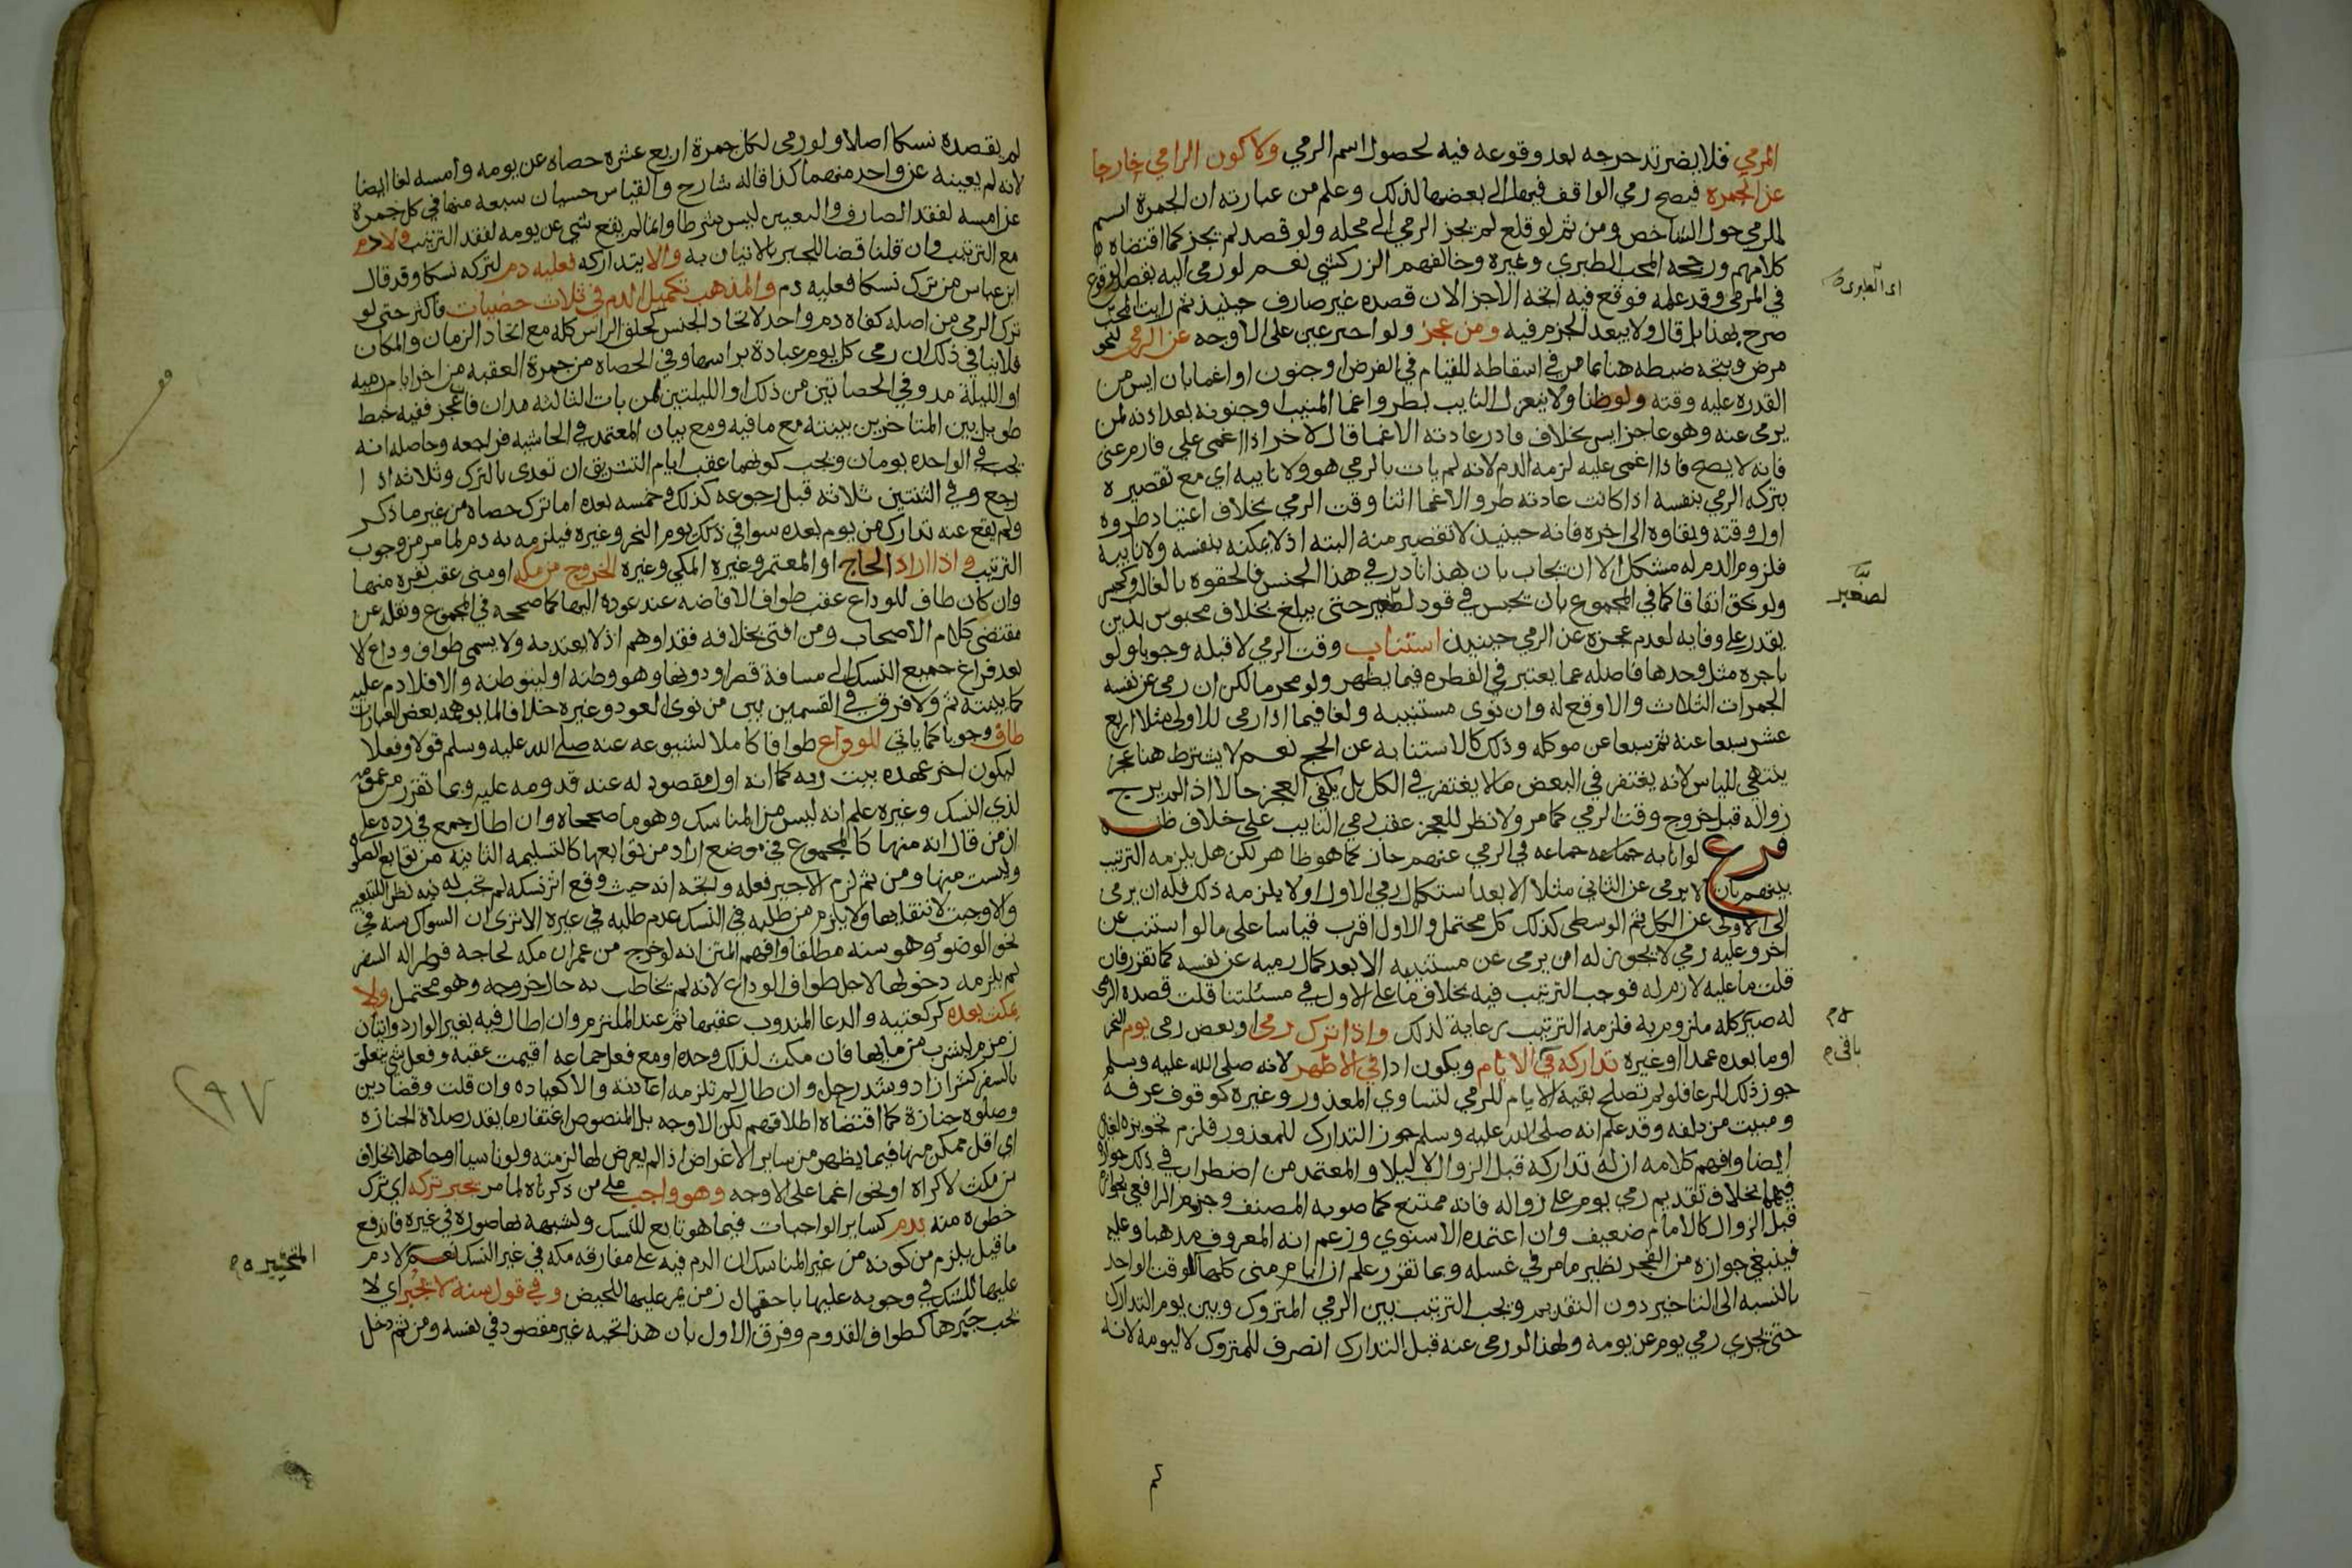 المرمي فلا يضر تدحرجه بعد وقوعه فيه لحصول اسم الرمي ولا كون الرامي خارجا
عن الجمرة فيصح رمي الواقف فيها الى بعضها لذلك وعلم من عبارته ان الجمرة اسم
للمرمي حول الشاخص ومن ثم لو قلع لم يجز الرمي الى محله ولو قصد لم يجز كما اقتضاه
كلامهم ورجحه المحب الطبري وغيره وخالفهم الزركشي نعم لو رمى اليه بقصد الوقوع
في المرمي وقد علمه فوقع فيه اتجه الاجزا لان قصده غير صارف حينيذ ثم رايت المحب
صرح بهذا بل قال ولا يبعد الجزم فيه ومن عجز ولو اجير عين على الاوجه عن الرمي لنحو
مرض ويتجه ضبطه هنا بما مر في اسقاطه للقيام في الفرض او جنون او اغما بان ايس من
القدرة عليه وقته ولو ظنا ولا ينعزل النايب بطرو اغما المنيب او جنونه بعد اذنه لمن
يرمي عنه وهو عاجز ايس بخلاف قادر عادته الاغما قال لاخر اذا اغمي علي فارم عني
فانه لا يصح فاذا اغمي عليه لزمه الدم لانه لم يات بالرمي هو ولا نايبه اي مع تقصيره
بتركه الرمي بنفسه اذا كانت عادته طرو الاغما اثنا وقت الرمي بخلاف اعتياد طروه
اول وقته وبقاوه الى اخره فانه حينيذ لا تقصير منه البته اذ لا يمكنه بنفسه ولا نايبه
فلزوم الدم له مشكل الا ان يجاب بان هذا نادر في هذا الجنس فالحقوه بالغالب وكحبس
ولو بحق اتفاقا كما في المجموع بان يحبس في قود لصغير حتى يبلغ بخلاف محبوس بدين
يقدر على وفايه لعدم عجزه عن الرمي حينيذ استناب وقت الرمي لا قبله وجوبا ولو
باجرة مثل وجدها فاضله عما يعتبر في الفطرة فيما يظهر ولو محرما لكن ان رمى عن نفسه
الجمرات الثلاث والا وقع له وان نوى مستنيبه ولغا فيما اذا رمى للاولى مثلا اربع
عشر سبعا عنه ثم سبعا عن موكله وذلك كالاستنابه عن الحج نعم لا يشترط هنا عجز
ينتهي للياس لانه يغتفر في البعض ما لا يغتفر في الكل بل يكفي العجز حالا اذا لم يرج
زواله قبل خروج وقت الرمي كما مر ولا نظر للعجز عقب رمي النايب على خلاف ظنه
فرع لو انابه جماعه جماعه في الرمي عنهم جاز كما هو ظاهر لكن هل يلزمه الترتيب
بينهم بان لا يرمي عن الثاني مثلا الا بعد استكمال رمي الاول او لا يلزمه ذلك فله ان يرمي
الى الاولى عن الكل ثم الوسطى كذلك كل محتمل والاول اقرب قياسا على ما لو استنيب عن
اخر وعليه رمي لا يجوز له ان يرمي عن مستنيبه الا بعد كمال رميه عن نفسه كما تقرر فان
قلت ما عليه لازم له فوجب الترتيب فيه بخلاف ما على الاول في مسئلتنا قلت قصده الرمي
له صير كله ملزوم به فلزمه الترتيب رعاية لذلك واذا ترك رمي او بعض رمي يوم النحر
او ما بعده عمدا او غيره تداركه في باقي الايام ويكون ادا في الاظهر لانه صلى الله عليه وسلم
جوز ذلك للرعا فلو لم تصلح بقية الايام للرمي لتساوى المعذور وغيره كوقوف عرفه
ومبيت مزدلفه وقد علم انه صلى الله عليه وسلم جوز التدارك للمعذور فلزم تجويزه لغيره
ايضا وافهم كلامه ان له تداركه قبل الزوال لا ليلا والمعتمد من اضطراب في ذلك جوازه
فيهما بخلاف تقديم رمي يوم على زواله فانه ممتنع كما صوبه المصنف وجزم الرافعي بجوازه
قبل الزوال كالامام ضعيف وان اعتمده الاسنوي وزعم انه المعروف مذهبا وعليه
فينبغي جوازه من الفجر نظير ما مر في غسله وبما تقرر علم ان ايام منى كلها كالوقت الواحد
بالنسبه الى التاخير دون التقديم ويجب الترتيب بين الرمي المتروك وبين يوم التدارك
حتى يجزي رمي يوم عن يومه ولهذا لو رمى عنه قبل التدارك انصرف للمتروك لا ليومه لانه
لصغير
باقي
لم يقصده نسكا اصلا ولو رمى لكل جمرة اربع عشره حصاه عن يومه وامسه لغا ايضا
لانه لم يعينه عن واحد منهما كذا قاله شارح والقياس حسبان سبعه منها في كل جمرة
عن امسه لفقد الصارف والتعيين ليس شرطا وانما لم يقع شي عن يومه لفقد الترتيب ولا دم
مع الترتيب وان قلنا قضا للجبر بالاتيان به والا يتداركه فعليه دم لتركه نسكا وقد قال
ابن عباس من ترك نسكا فعليه دم والمذهب تكميل الدم في ثلاث حصيات فاكثر حتى لو
ترك الرمي من اصله كفاه دم واحد لاتحاد الجنس كحلق الراس كله مع اتحاد الزمان والمكان
فلا ينافي ذلك ان رمي كل يوم عبادة براسها وفي الحصاه من جمرة العقبه من اخر ايام رميه
او الليلة مد وفي الحصاتين من ذلك او الليلتين لمن بات الثالثه مدان فان عجز ففيه خبط
طويل بين المتاخرين بينته مع ما فيه ومع بيان المعتمد في الحاشيه فراجعه وحاصله انه
يجب في الواحده يومان ويجب كونهما عقب ايام التشريق ان تعدى بالترك وثلاثه اذا
رجع وفي الثنتين ثلاثه قبل رجوعه كذلك وخمسه بعده اما ترك حصاه من غير ما ذكر
ولم يقع عنه تدارك من يوم بعده سوا في ذلك يوم النحر وغيره فيلزمه به دم لما مر من وجوب
الترتيب واذا اراد الحاج او المعتمر وغيره المكي وغيره الخروج من مكه او منى عقب نفره منها
وان كان طاف للوداع عقب طواف الافاضه عند عوده اليها كما صححه في المجموع ونقله عن
مقتضى كلام الاصحاب ومن افتى بخلافه فقد اوهم اذ لا يعتد به ولا يسمى طواف وداع الا
بعد فراغ جميع النسك الى مسافة قصر او دونها وهو وطنه او ليتوطنه والا فلا دم عليه
كما بينته ثم ولا فرق في القسمين بين من نوى العود وغيره خلافا لما يوهمه بعض العبارات
طاف وجوبا كما ياتي للوداع طوافا كاملا لثبوته عنه صلى الله عليه وسلم قولا وفعلا
ليكون اخر عهده ببيت ربه كما انه اول مقصود له عند قدومه عليه وبما تقرر من عمومه
لذي النسك وغيره علم انه ليس من المناسك وهو ما صححاه وان اطال جمع في رده على
ان من قال انه منها كالمجموع في موضع اراد من توابعها كالتسليمه الثانيه من توابع الصلوة
وليست منها ومن ثم لزم الاجير فعله ويتجه انه حيث وقع اثر نسكه لم تجب له نيه نظرا للتبعيه
والا وجبت لانتفايها ولا يلزم من طلبه في النسك عدم طلبه في غيره الا ترى ان السواك سنه في
نحو الوضوء وهو سنه مطلقا وافهم المتن انه لو خرج من عمران مكه لحاجه فطرا له السفر
لم يلزمه دخولها لاجل طواف الوداع لانه لم يخاطب به حال خروجه وهو محتمل ولا
يمكث بعده كركعتيه والدعا المندوب عقبها ثم عند الملتزم وان اطال فيه بغير الوارد واتيان
زمزم ليشرب من مايها فان مكث لذلك وحده او مع فعل جماعه اقيمت عقبه وفعل شي يتعلق
بالسفر كشرا زاد وشد رحل وان طال لم تلزمه اعادته والا كعياده وان قلت وقضا دين
وصلوة جنازة كما اقتضاه اطلاقهم لكن الاوجه بل المنصوص اغتفار ما بقدر صلاة الجنازه
اي اقل ممكن منها فيما يظهر من ساير الاغراض اذا لم يعرض لها لزمته ولو ناسيا او جاهلا بخلاف
من مكث لاكراه او نحو اغما على الاوجه وهو واجب على من ذكرناه لما مر يجبر تركه اي ترك
خطوه منه بدم كساير الواجبات فيما هو تابع للنسك ولشبهه بها صورة في غيره فاندفع
ما قيل يلزم من كونه من غير المناسك ان الدم فيه على مفارقه مكه في غير النسك نعم لا دم
عليها للشك في وجوبه عليها باحتمال زمن يمر عليها للحيض وفي قول سنه لا يجبر اي لا
يجب جبرها كطواف القدوم وفرق الاول بان هذا تحيه غير مقصود في نفسه ومن ثم دخل
المتحيره
٢٩٧